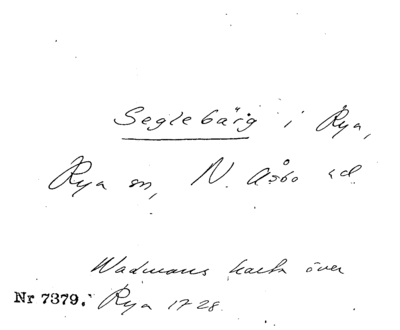 Seglebärg i Rya,
Rya sn, N. Åsbo hd
Wadmans karta över
Nr 7379. Rya 1728.